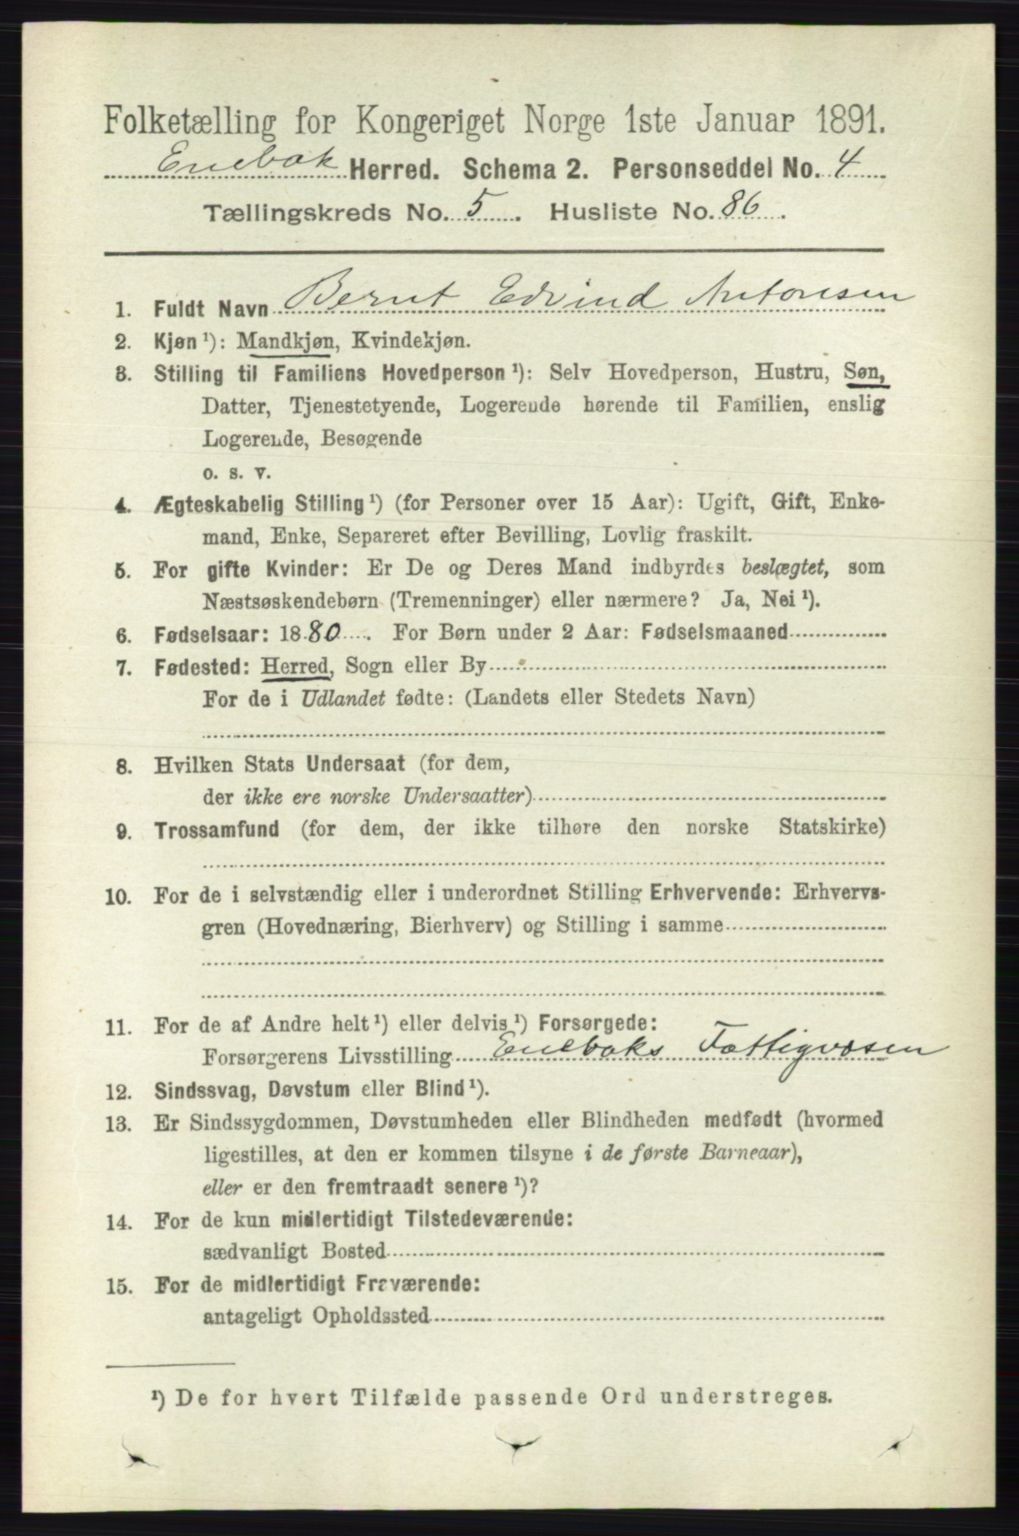 Folketælling for Kongeriget Norge 1ste Januar 1891.
Enebak Herred. Schema 2. Personseddel No. 4
Tællingskreds No. 5. Husliste No. 86.
1. Fuldt Navn Bernt Edvind Antonsen
2. Kjøn ¹): Mandkjøn, Kvindekjøn.
3. Stilling til Familiens Hovedperson ¹): Selv Hovedperson, Hustru, Søn,
Datter, Tjenestetyende, Logerende hørende til Familien, enslig
Logerende, Besøgende
o. s. v.
4. Ægteskabelig Stilling ¹) (for Personer over 15 Aar): Ugift, Gift, Enke-
mand, Enke, Separeret efter Bevilling, Lovlig fraskilt.
5. For gifte Kvinder: Er De og Deres Mand indbyrdes beslægtet, som
Næstsøskendebørn (Tremenninger) eller nærmere? Ja, Nei ¹).
6. Fødselsaar: 1880. For Børn under 2 Aar: Fødselsmaaned
7. Fødested: Herred, Sogn eller By
For de i Udlandet fødte: (Landets eller Stedets Navn)
8. Hvilken Stats Undersaat (for dem,
der ikke ere norske Undersaatter)
9. Trossamfund (for dem, der ikke tilhøre den norske Statskirke)
10. For de i selvstændig eller i underordnet Stilling Erhvervende: Erhvervs-
gren (Hovednæring, Bierhverv) og Stilling i samme
11. For de af Andre helt ¹) eller delvis ¹) Forsørgede:
Forsørgerens Livsstilling Enebaks Fattigvæsen
12. Sindssvag, Døvstum eller Blind ¹).
13. Er Sindssygdommen, Døvstumheden eller Blindheden medfødt (hvormed
ligestilles, at den er kommen tilsyne i de første Barneaar),
eller er den fremtraadt senere ¹)?
14. For de kun midlertidigt Tilstedeværende:
sædvanligt Bosted
15. For de midlertidigt Fraværende:
antageligt Opholdssted
¹) De for hvert Tilfælde passende Ord understreges.